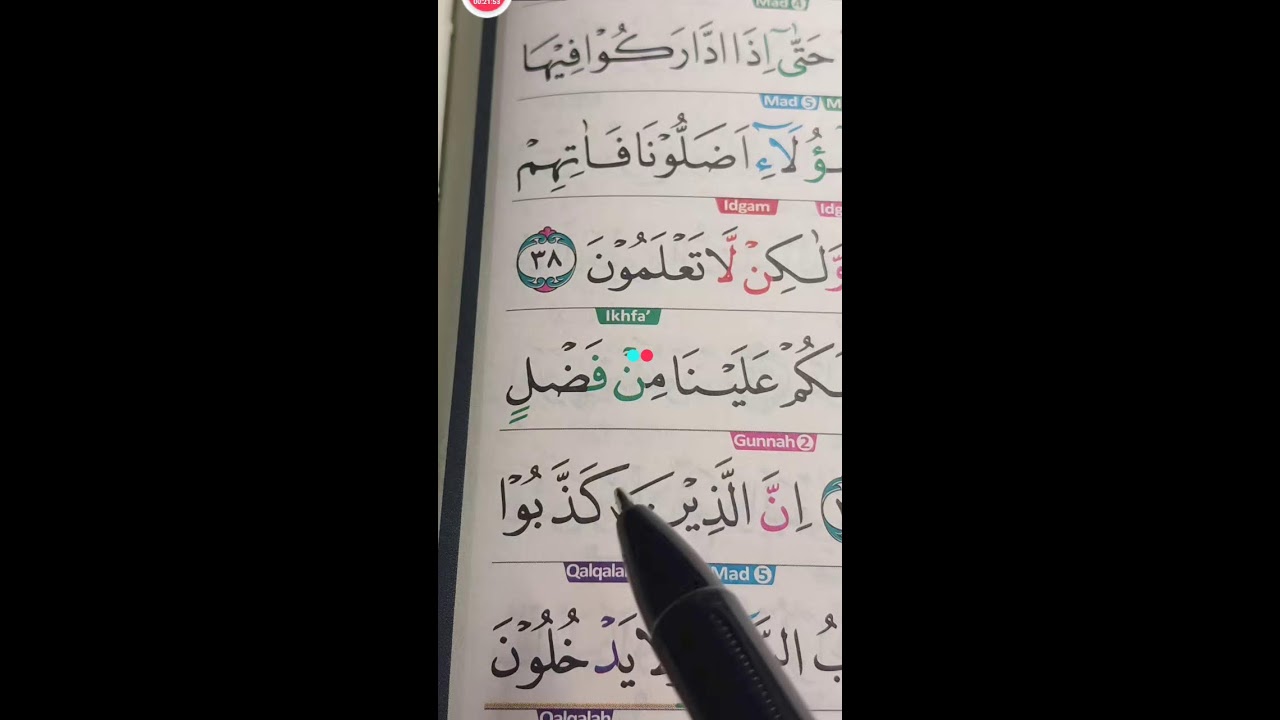 00:21:53
Mad 4
حَتّٰٓى اِذَا ادَّارَكُوْا فِيْهَا
Mad 5
لَآءِ اَضَلُّوْنَا فَاٰتِهِمْ
Idgam
وَّلٰكِنْ لَّا تَعْلَمُوْنَ ٣٨
Ikhfa’
عَلَيْنَا مِنْ فَضْلٍ
Gunnah 2
اِنَّ الَّذِيْنَ كَذَّبُوْا
Mad 5
يَدْخُلُوْنَ
Qalqalah